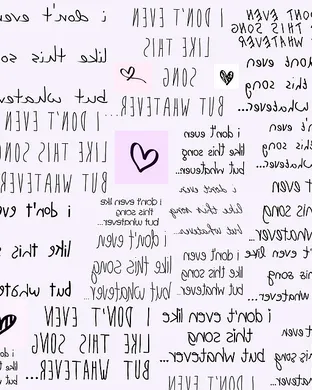 i don't even
like this so
but whatever
I DON'T EVEN
LIKE THIS
SONG
BUT WHATEVER...
I DON'T EVEN
SONG THIS
WHATEVER
i don't even
song
this
whatever...
I DON'T EVEN
LIKE THIS SONG
BUT WHATEVER
i don't even
like this song
but whatever...
i don't even
like this song
but whatever
i don't even
song this
whatever...
i don't even
like this
but whatever
i don't even
like this
song
but whatever...
i don't even
like this song
but whatever...
i don't even
like this song
but whatever...
i don't even
song this
whatever...
I DON'T EVEN
LIKE THIS SONG
BUT WHATEVER...
i don't even like
song this
but whatever...
i don't even
song this
whatever
i do
like
but
I DON'T EVEN